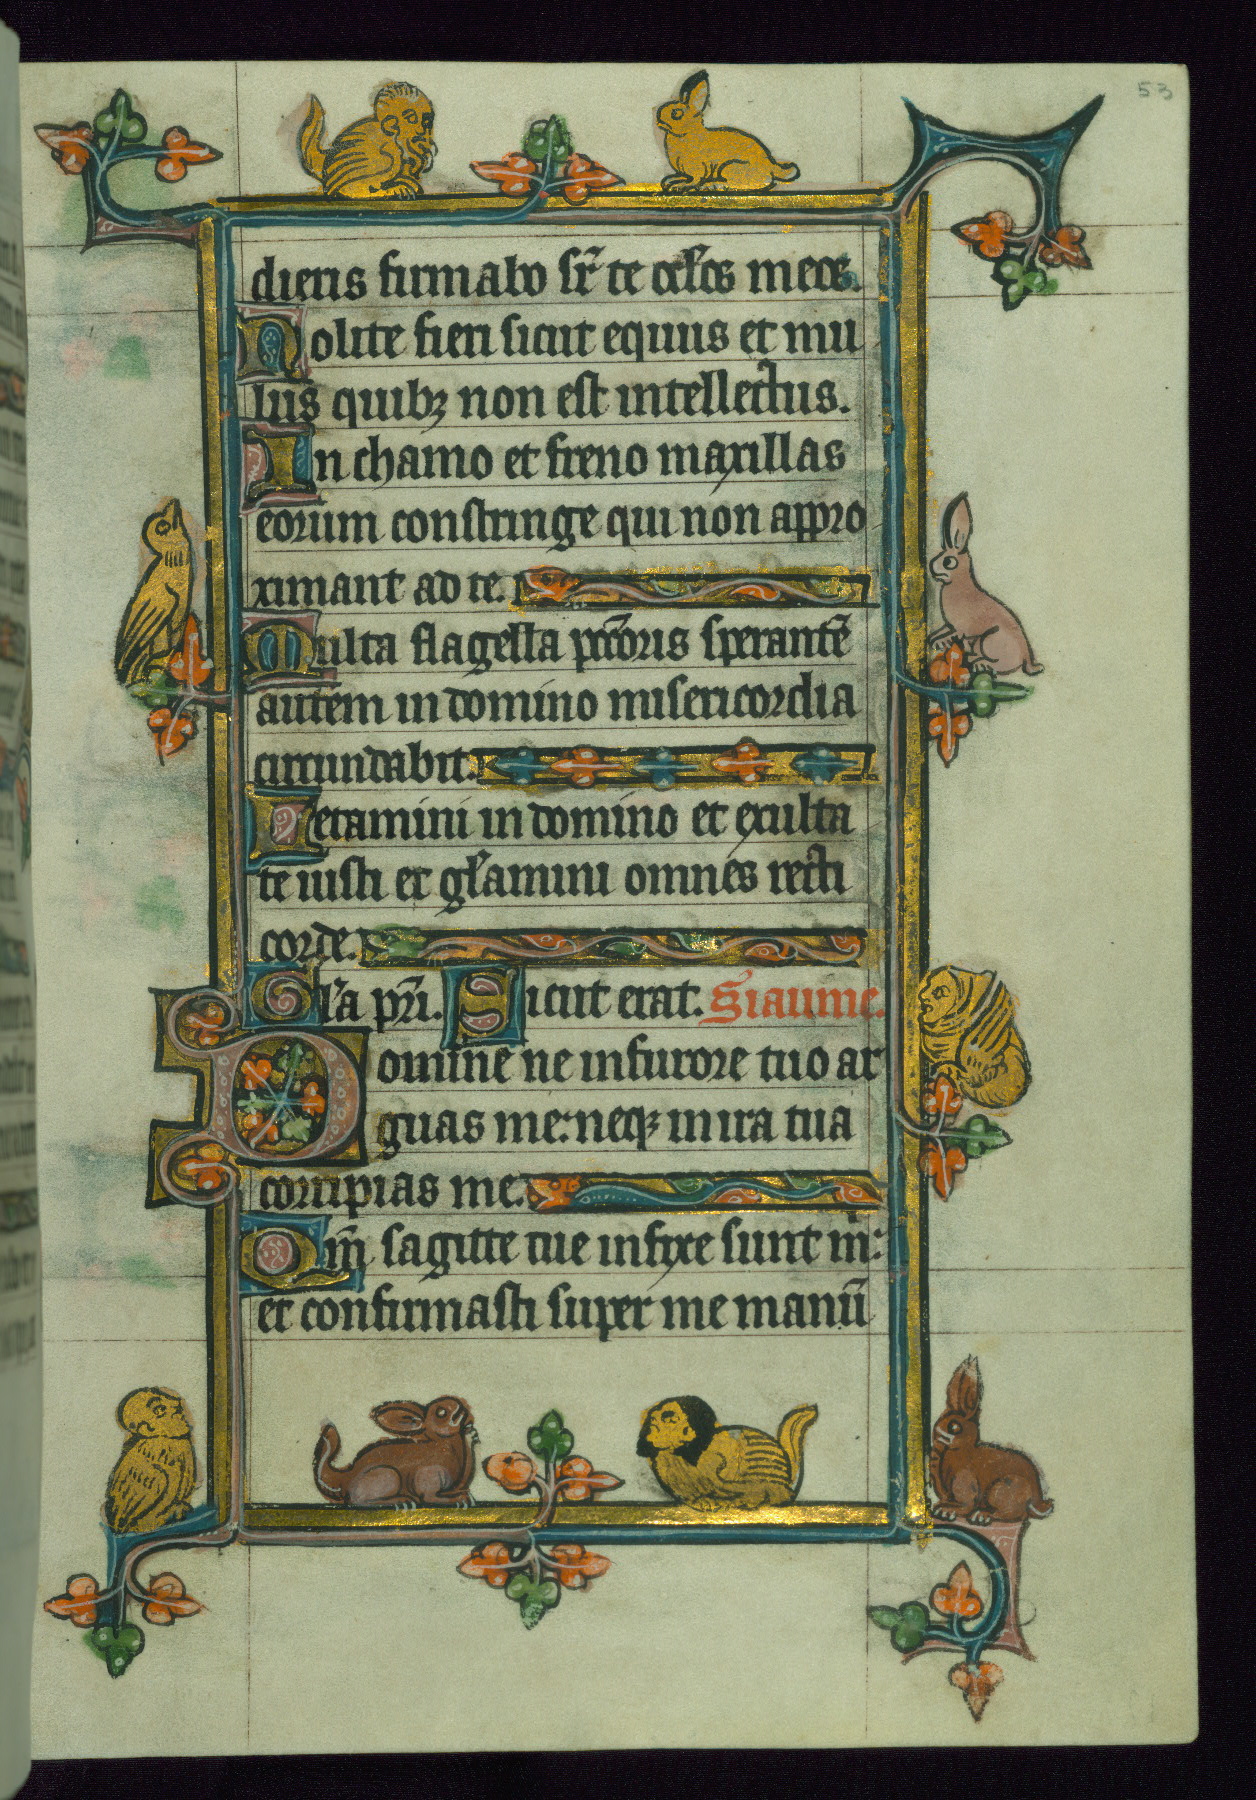 53
dieris firmabo sr̄ te oc̄los meos.
Nolite fieri sicut equus et mu
lus quibꝫ non est intellectus.
In chamo et freno maxillas
eorum constringe qui non appro
ximant ad te.
Multa flagella pc̄c̄oris sperantē
autem in domino misericordia
circundabit.
Letamini in domino et exulta
te iusti et gl̄amini omnes recti
corde.
Gl̄a pr̄i. Sicut erat.
Domine ne in furore tuo ar
guas me: neqꝫ in ira tua
corripias me.
Qm̄ sagitte tue infixe sunt m̄:
et confirmasti super me manū